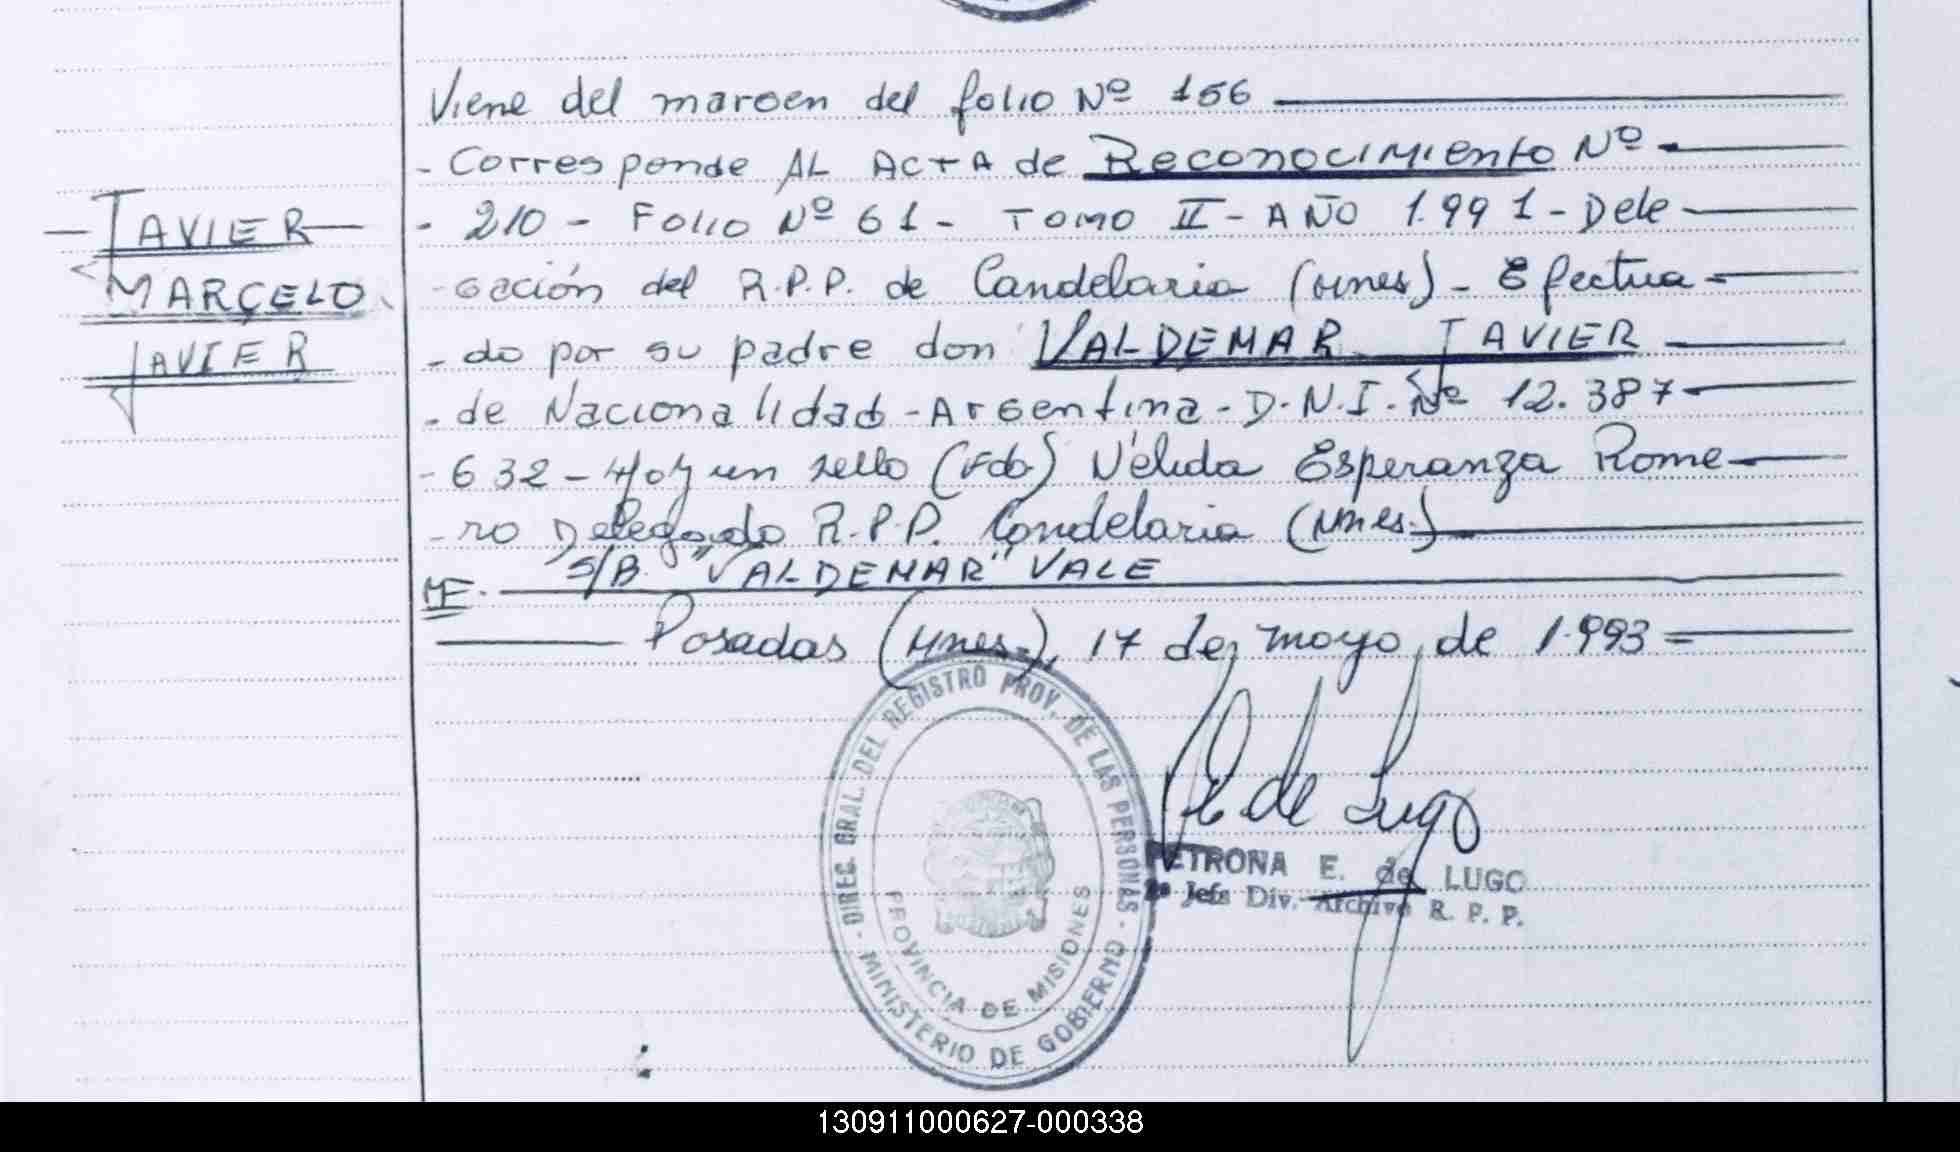 Viene del margen del folio Nº 156
- Corresponde AL ACTA de Reconocimiento Nº -
- 210 - Folio Nº 61 - TOMO II - AÑO 1.991 - Dele
JAVIER
MARCELO
JAVIER
- gación del R.P.P. de Candelaria (Mnes) - Efectua -
- do por su padre don VALDEMAR JAVIER
- de Nacionalidad - Argentina - D.N.I. Nº 12.387 -
- 632 - Hay un sello (Fdo) Nélida Esperanza Rome
- ro Delegado R.P.P. Candelaria (Mnes.)
S/B. "VALDEMAR" VALE
Posadas (Mnes.), 17 de mayo de 1.993 =
DIREC. GRAL. DEL REGISTRO PROV. DE LAS PERSONAS
PROVINCIA DE MISIONES
MINISTERIO DE GOBIERNO
de Lugo
PETRONA E. de LUGO
2º Jefe Div. Archivo R. P. P.
130911000627-000338